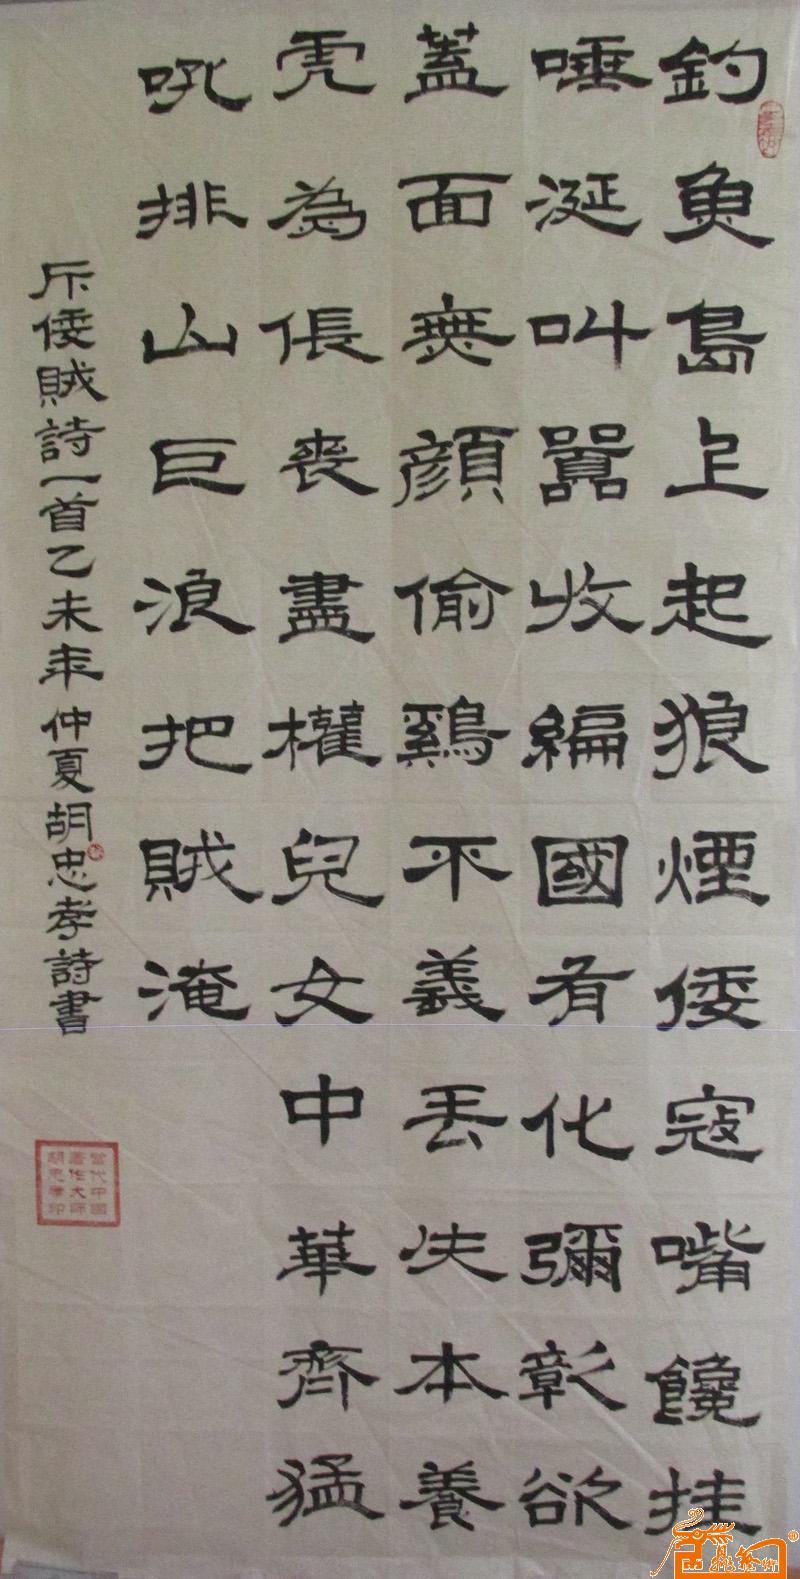 釣魚島上起狼煙倭寇嘴饞挂
唾涎叫囂收編國有化彌彰欲
蓋面無顏偷鷄不義丟伕本養
虎為倀喪盡權兒女中華齊猛
吼排山巨浪把賊淹
斥倭賊詩一首乙未年仲夏胡忠孝詩書
當代中國
著作大師
胡忠孝印